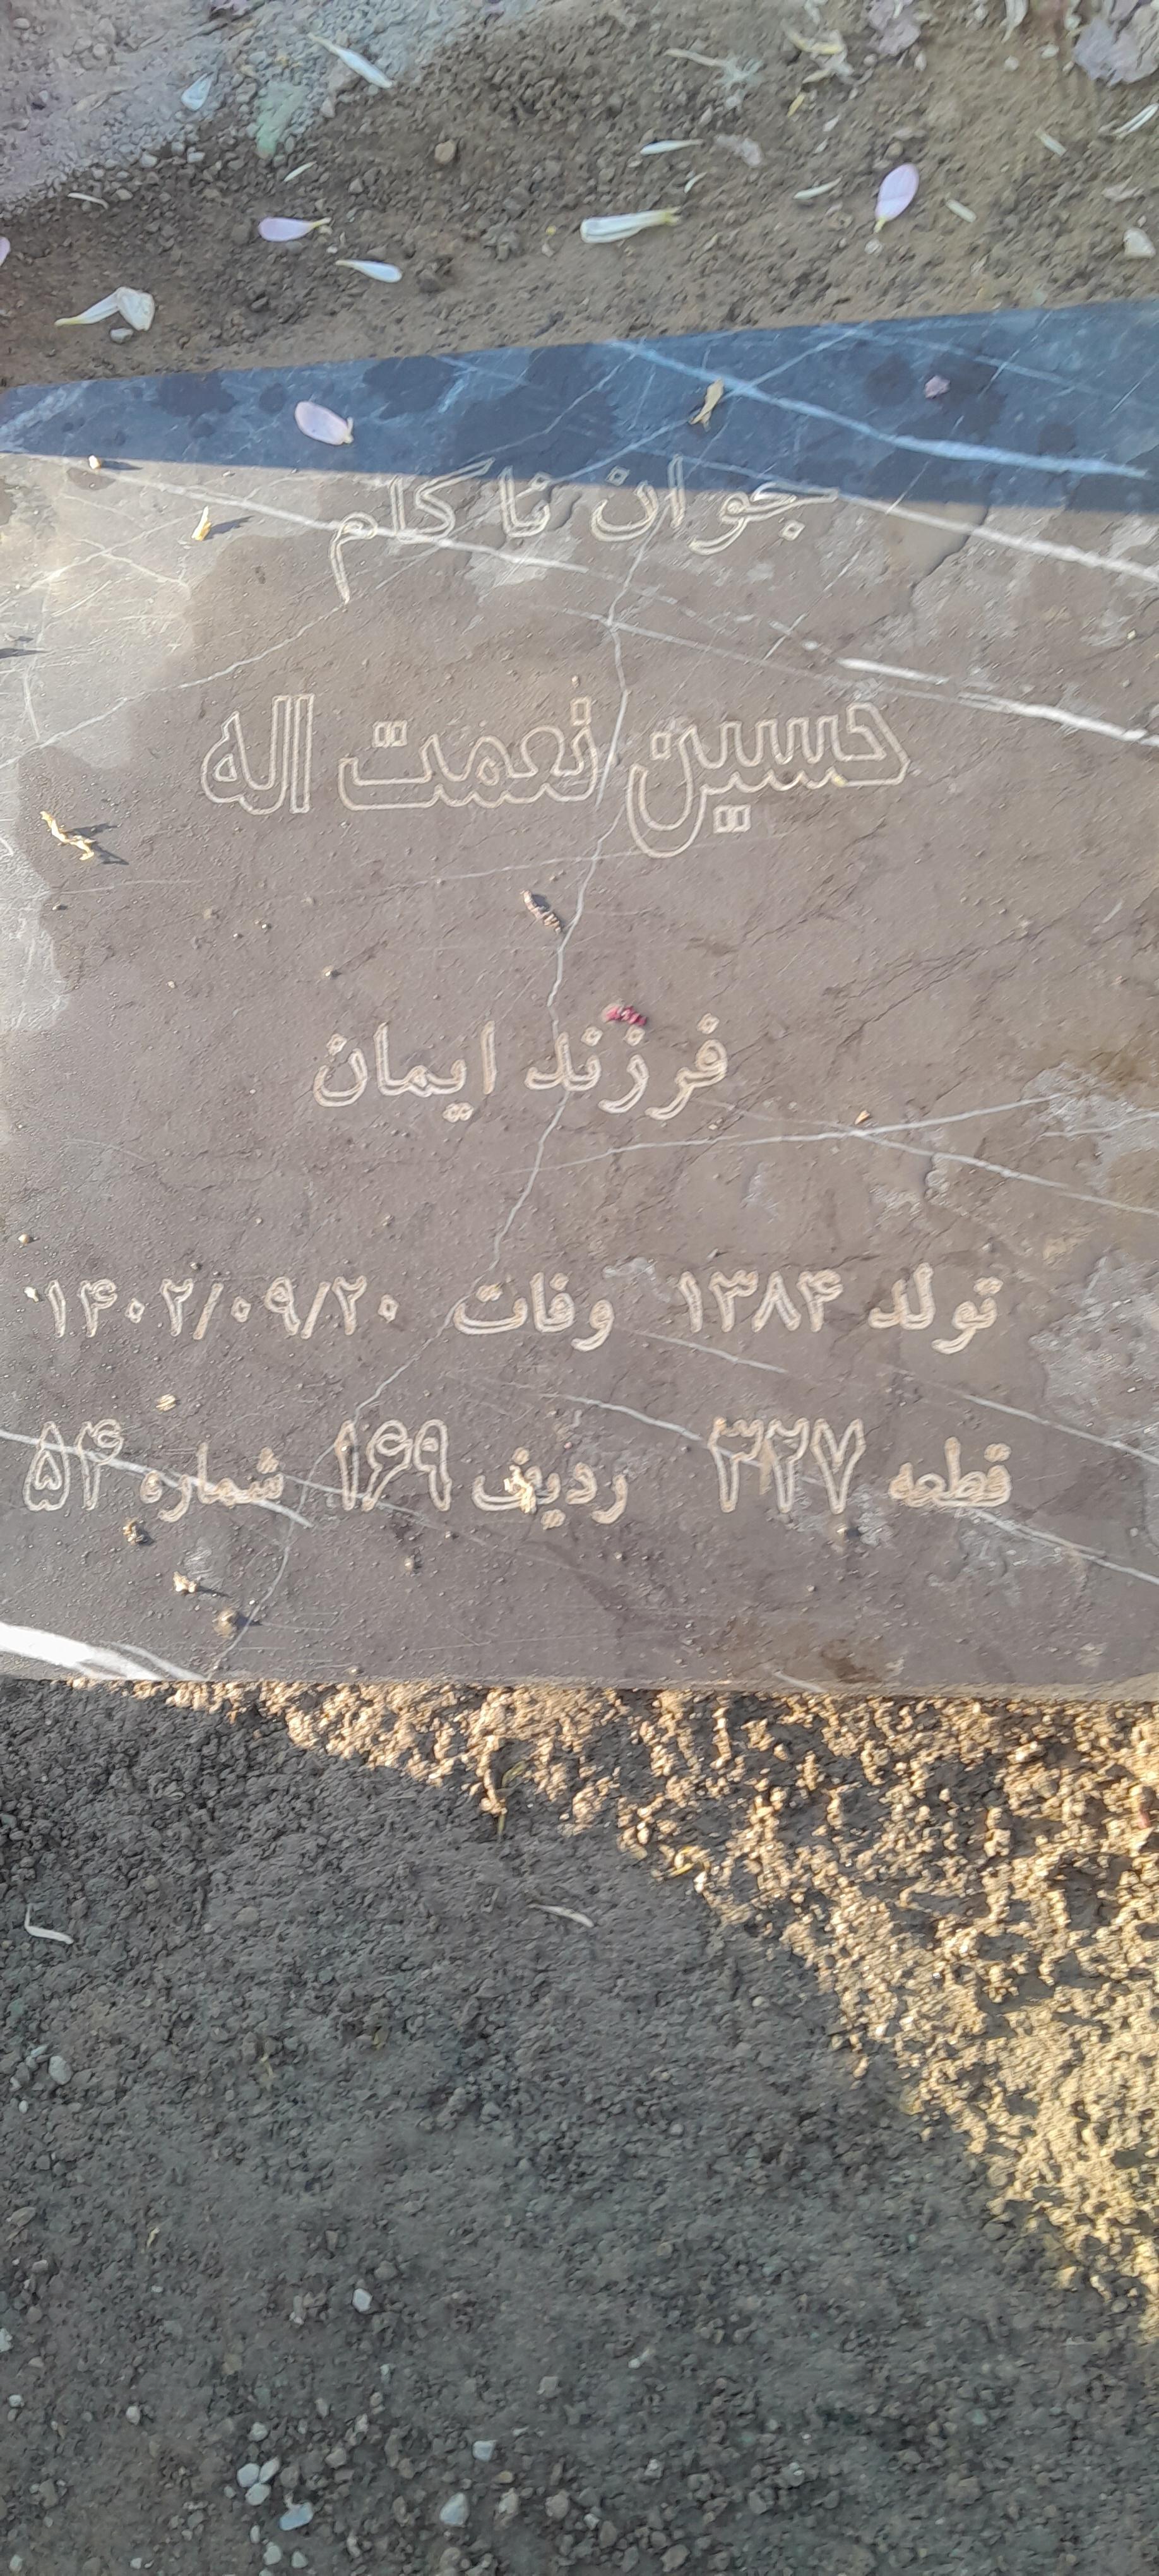 جوان نا کام
حسین نعمت اله
فرزند ایمان
تولد ۱۳۸۴ وفات ۱۴۰۲/۰۹/۲۰
قطعه ۳۲۷ ردیف ۱۶۹ شماره ۵۴